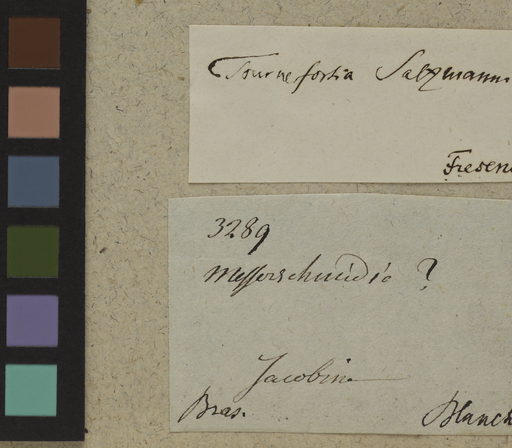 Tournefortia Salzmanni
Fresen
3289
Messerschmidia ?
Jacobina
Bras. Blanch